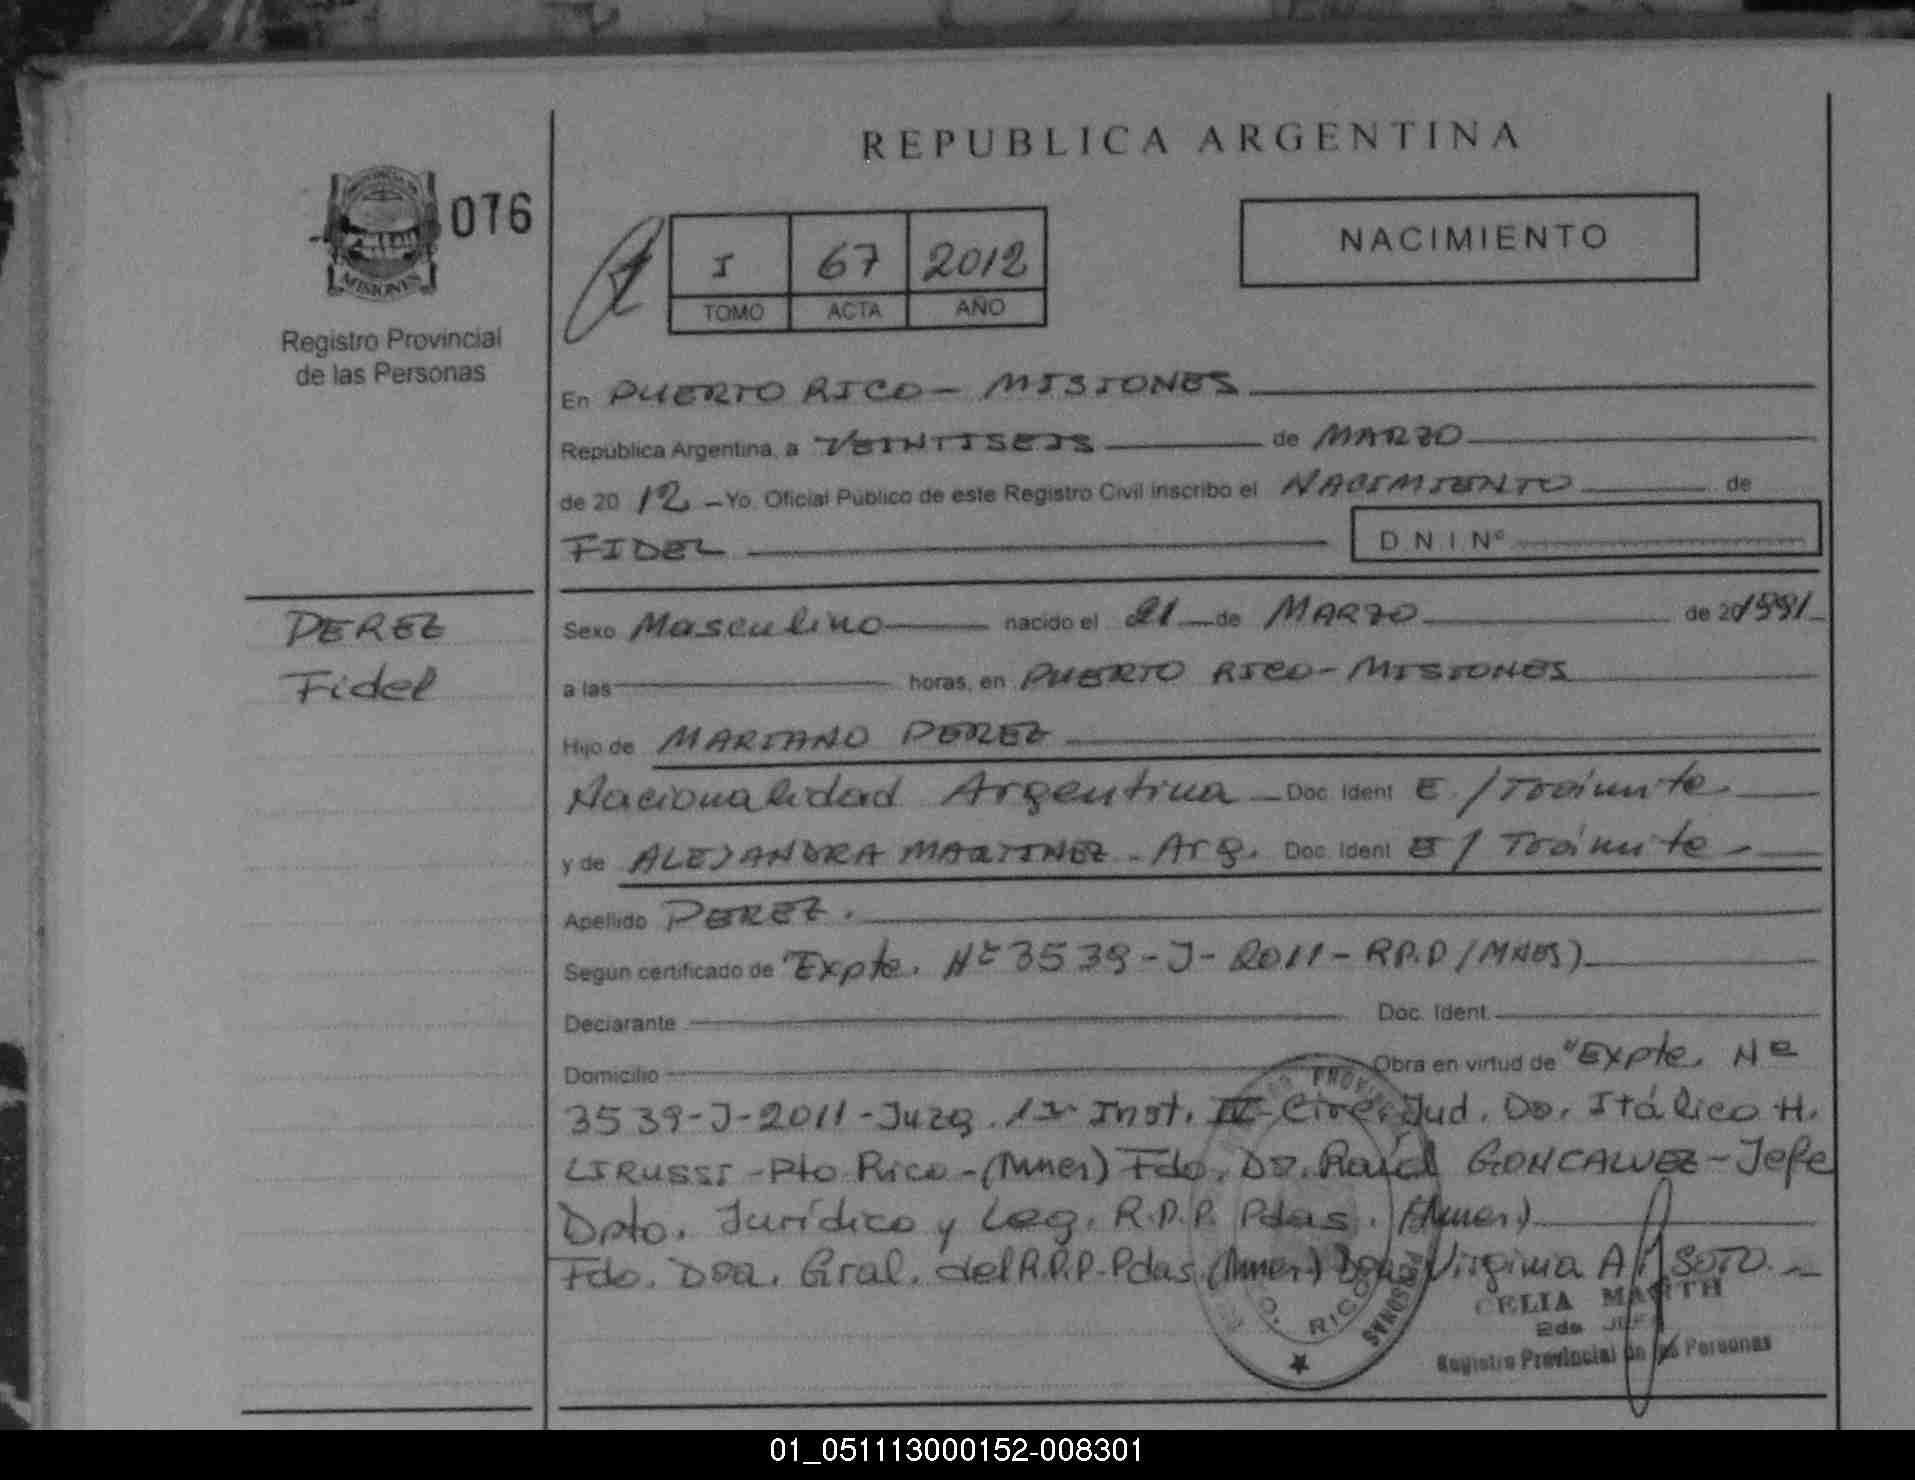 REPUBLICA ARGENTINA
076
MISIONES
Registro Provincial
de las Personas
I 67 2012
TOMO ACTA AÑO
NACIMIENTO
En PUERTO RICO - MISIONES
República Argentina, a VEINTISEIS de MARZO
de 20 12 - Yo, Oficial Público de este Registro Civil inscribo el NACIMIENTO de
FIDEL D.N.I. Nº
PEREZ
Fidel
Sexo Masculino nacido el 21 de MARZO de 20 1991
a las horas, en PUERTO RICO - MISIONES
Hijo de MARIANO PEREZ
Nacionalidad Argentina Doc. Ident E./Trámite.
y de ALEJANDRA MARTINEZ - Arg. Doc. Ident E/Trámite -
Apellido PEREZ.
Según certificado de "Expte. Nº 3539-J-2011- RP.P/MNES)
Declarante Doc. Ident.
Domicilio Obra en virtud de "Expte. Nº
3539-J-2011-Juzg. 1ª Inst. IV Circ. Jud. Do. Itálico H.
LIRUSSI - Pto Rico - (Mnes) Fdo. Dr. Raúl GONCALVEZ - Jefe
Dpto. Jurídico y Leg. R.P.P. Pdas. (Mnes.)
Fdo. Dra. Gral. del R.P.P. Pdas. (Mnes.) Virginia A. SOTO. -
CELIA MARTH
2da JEFA
Registro Provincial de las Personas
RICO
PERSONAS
01_051113000152-008301